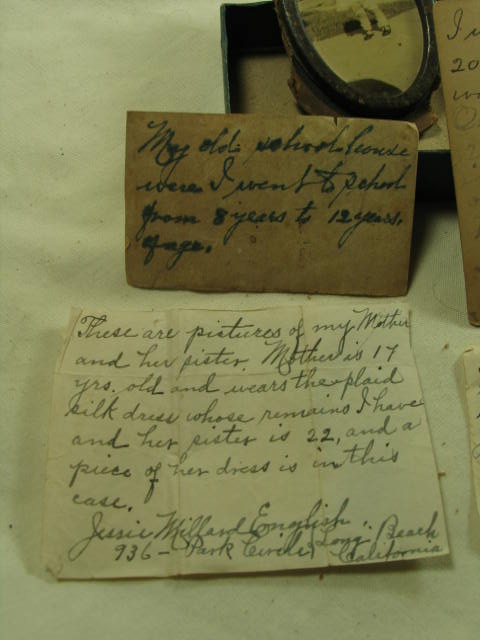 My old school house
were I went to school
from 8 years to 12 years.
of age.
I w
20
These are pictures of my Mother
and her sister. Mother is 17
yrs. old and wears the plaid
silk dress whose remains I have
and her sister is 22, and a
piece of her dress is in this
case.
Jessie Millard English
936 - Park Circle, Long Beach
California